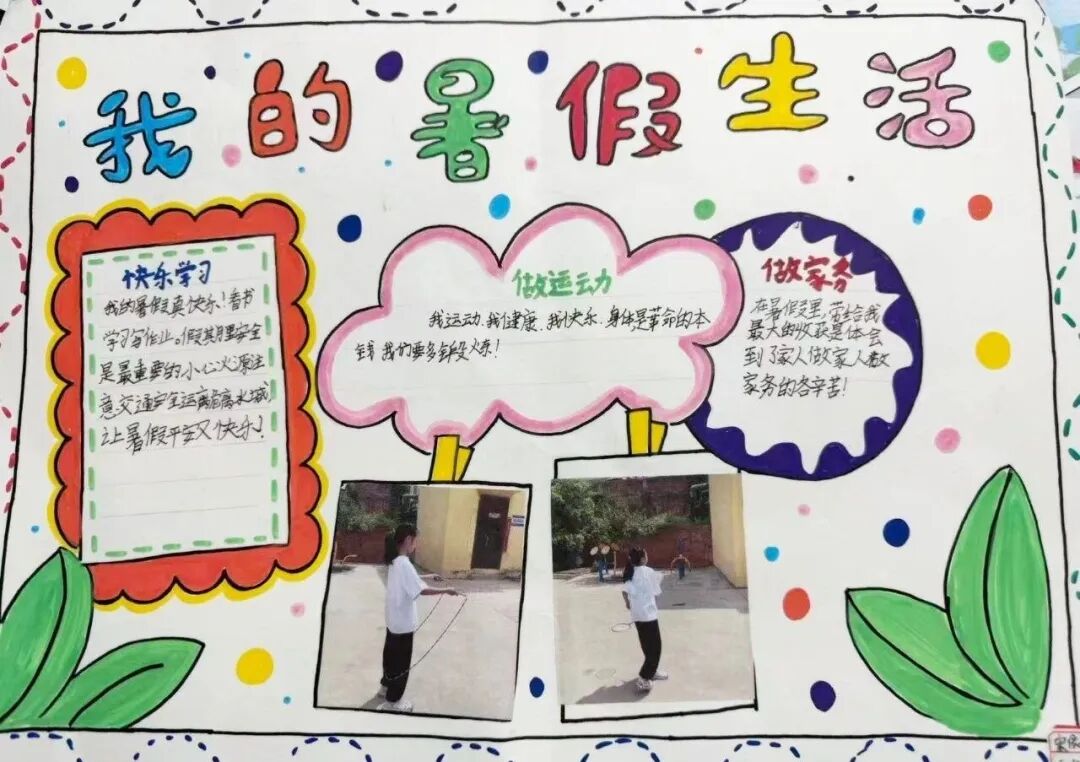 我的暑假生活
快乐学习
我的暑假真快乐!看书
学习写作业。假期里安全
是最重要的小心火源注
意交通安全远离水域
让暑假平安又快乐!
做运动
我运动.我健康.我快乐.身体是革命的本
钱 我们要多锻炼!
做家务
在暑假里,带给我
最大的收获是体会
到了家人做家人做
家务的各辛苦!